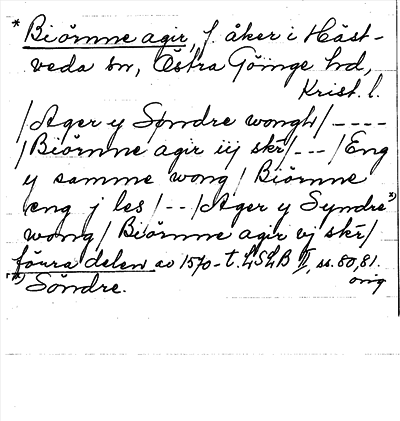 * Biörnne agir, f. åker i Häst-
veda sn, Östra Göinge hd,
Krist. l.
/Ager y Søndre wongh/ ----
/Biörnne agir iij skr/ --- /Eng
y samme wong/ Biörnne
eng j les/ -- /Ager y Syndre*)
wong/ Biörnne agir vj skr/
förra delen av 1570-t. LSLB II, ss. 80, 81.
orig
*) Söndre.